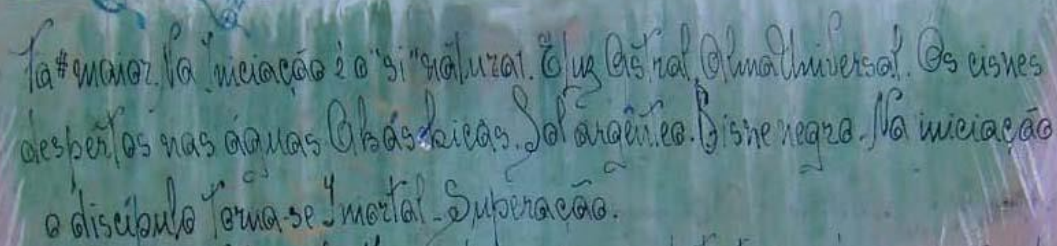 Fá# maior. Na Iniciação é o "si" natural. É luz Astral, Alma Universal. Os cisnes
despertos nas águas Akáshicas. Sol argênteo. Cisne negro. Na iniciação
o discípulo Torna-se Imortal - Superação.